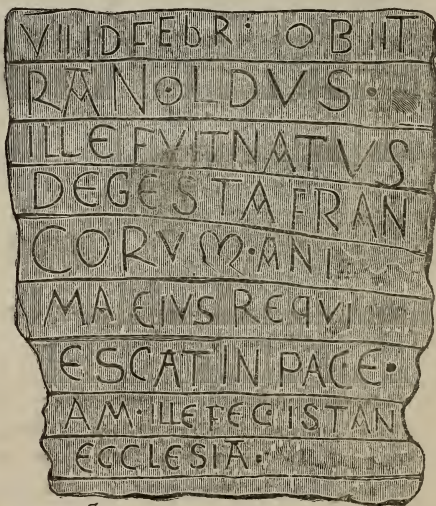 VIIIDFEbR: OBIIT
RANOLDVS·
ILLEFVITNATVS
DEGESTAFRAN
CORVM·ANI
MA EIVS REQVI
ESCAT IN PACE·
AM·ILLEFEC·ISTAN
ECCLESIÃ·